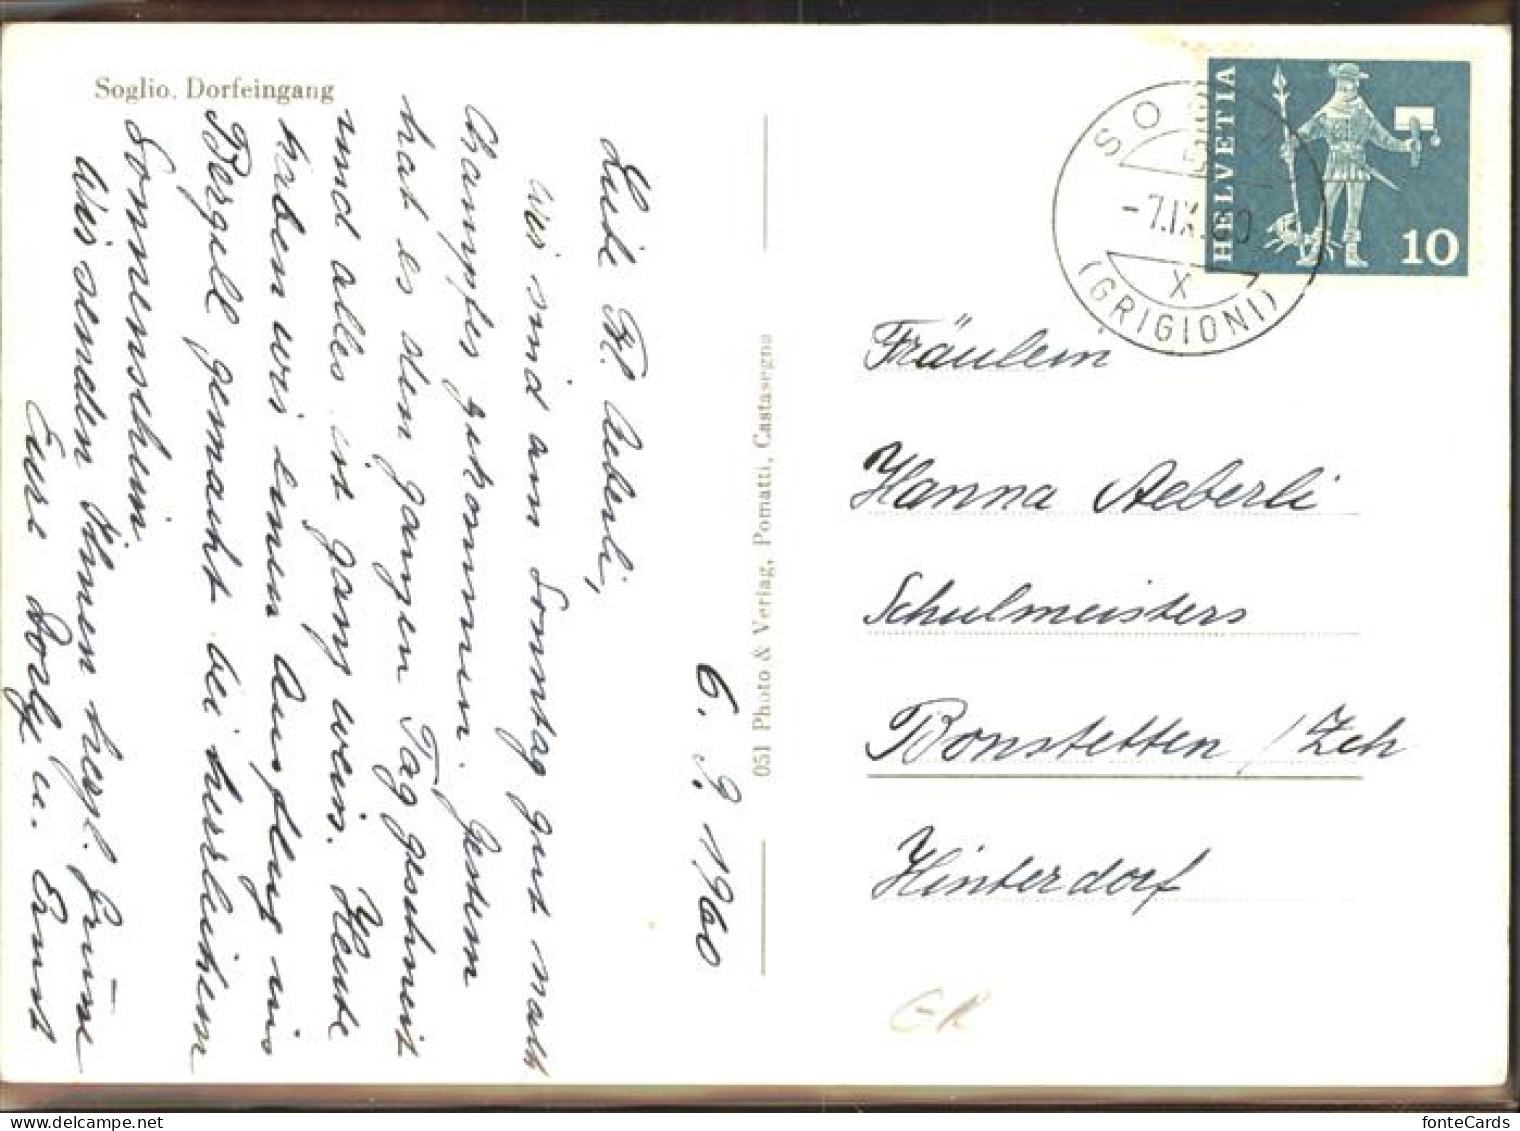 Soglio. Dorfeingang
6. 9. 1960
Liebe Frl. Aeberli,
Wir sind am Sonntag gut nach
Champfèr gekommen. Gestern
hat es den ganzen Tag geschneit
und alles ist ganz weiss. Heute
haben wir einen Ausflug ins
Bergell gemacht bei herrlichem
Sonnenschein.
Wir senden Ihnen herzl. Grüsse
Eure Dorly u. Ernst
051 Photo & Verlag, Pomatti, Castasegna
HELVETIA
10
SO
-7.IX.60
X
(GRIGIONI)
Fräulein
Hanna Aeberli
Schulmeisters
Bonstetten / Zch
Hinterdorf
GR
fonteCards